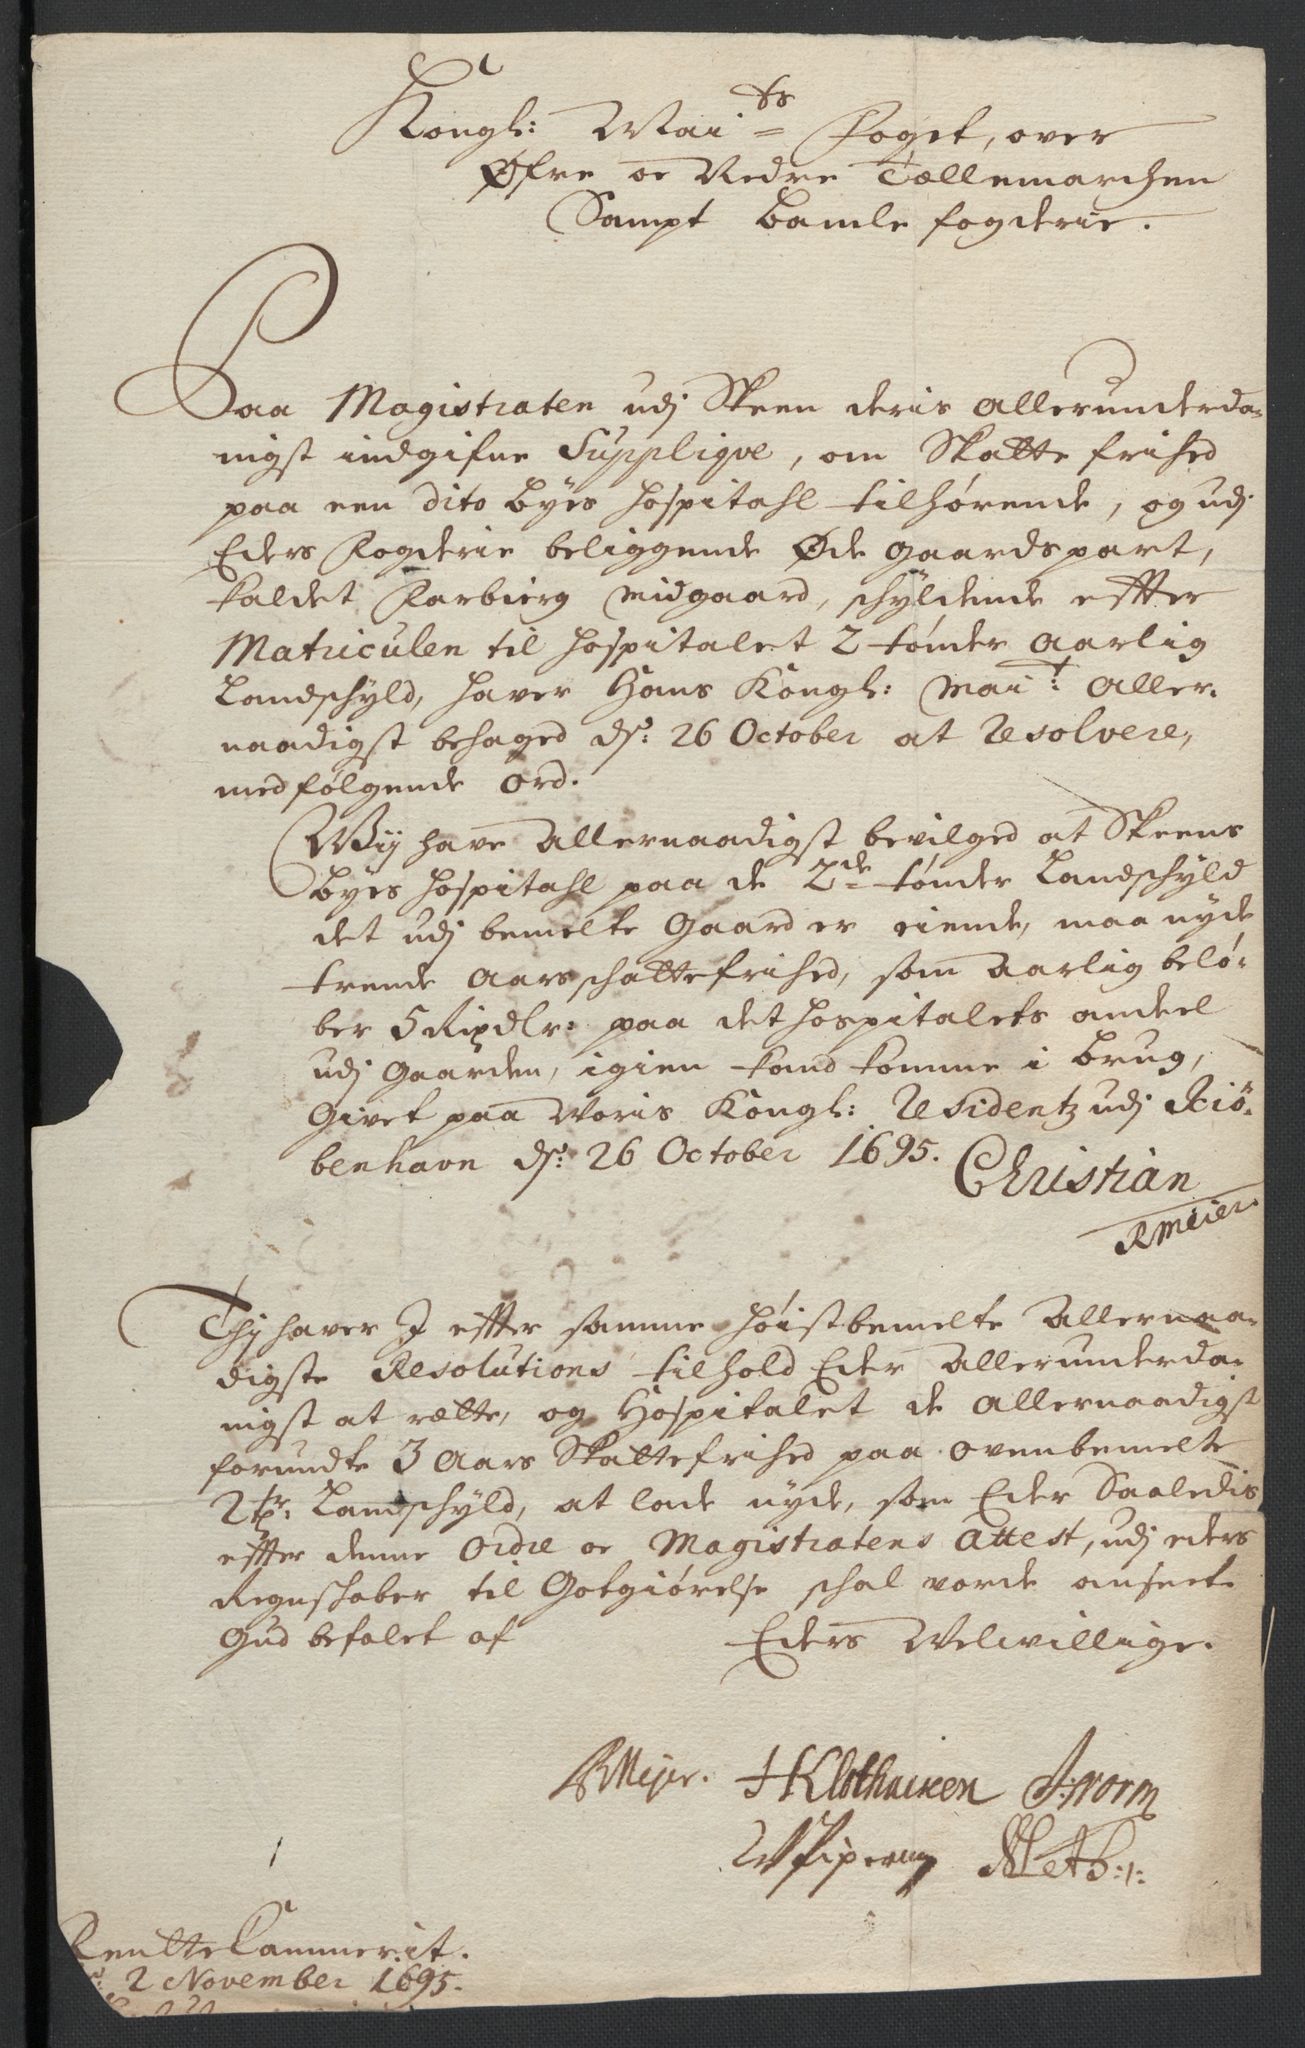 Kongl: Mai ts Foget, over
Øfre oc Nedre Tællemarchen
Sampt Bamle fogderie.
Paa Magistraten udj Skeen deris Allerunderda-
nigst indgifne Supplique, om Skatte frihed
paa een dito Byes Hospitahl tilhørende, og udj
Eders Fogderie beliggende Øde gaardspart,
kaldet Farbierg Midgaard, schyldende effter
Matriculen til Hospitalet 2 tønder Aarlig
Landschyld, haver Hans Kongl: Mai t: Aller-
naadigst behaged ds: 26 October at Resolvere,
med følgende ord.
Wij have Allernaadigst bevilged at Skeens
Byes Hospitahl paa de 2de tønder Landschyld
det udj bemelte Gaard er eiende, maa nyde
trende Aars schattefrihed, som Aarlig belø-
ber 5 Rixdlr: paa det Hospitalets andeel
udj Gaarden, igien kand komme i Brug,
Givet paa Woris Kongl: Residentz udj Kiø-
benhavn ds: 26 October 1695. Christian
RMeier.
Thj haver I effter samme høistbemelte Allernaa-
digste Resolutions tilhold Eder Allerunderda-
nigst at rætte, og Hospitalet de Allernaadigst
forundte 3 Aars Skattefrihed paa ovenbemelte
2 tr: Landschyld, at lade nyde, som Eder Saaledis
effter denne Ordre oc Magistratens Attest, udj eders
Regnskaber til Gotgiørelse schal vorde anseet.
Gud befalet af Eders Welvillige.
RMejer. HKlothacken J:Worm
W Piper
Rentte Cammerit.
2 November 1695.